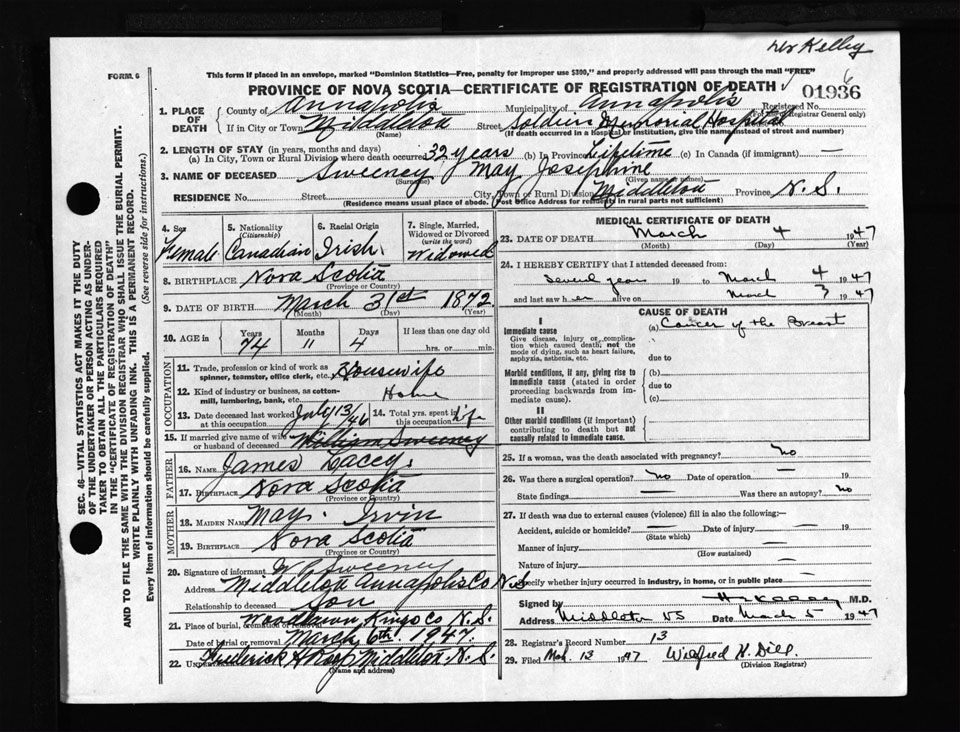 Dr Kelley
FORM 6
This form if placed in an envelope, marked "Dominion Statistics—Free, penalty for improper use $300," and properly addressed will pass through the mail "FREE"
PROVINCE OF NOVA SCOTIA—CERTIFICATE OF REGISTRATION OF DEATH
01936
6
1. PLACE OF DEATH
County of Annapolis Municipality of Annapolis Registered No.
(For use of Registrar General only)
If in City or Town Middleton Street Soldiers Memorial Hospital
(Name) (If death occurred in a Hospital or Institution, give the name instead of street and number)
2. LENGTH OF STAY (in years, months and days)
(a) In City, Town or Rural Division where death occurred 32 years (b) In Province Lifetime (c) In Canada (if immigrant) —
3. NAME OF DECEASED Sweeney May Josephine
(Surname) (Given names)
RESIDENCE No. Street City, Town or Rural Division Middleton Province N.S.
(Residence means usual place of abode. Post Office Address for residents in rural parts not sufficient)
4. Sex Female
5. Nationality (Citizenship) Canadian
6. Racial Origin Irish
7. Single, Married, Widowed or Divorced (write the word) Widowed
8. BIRTHPLACE Nova Scotia
(Province or Country)
9. DATE OF BIRTH March 31st 1872
(Month) (Day) (Year)
10. AGE in Years 74 Months 11 Days 4 If less than one day
hrs. or min.
OCCUPATION
11. Trade, profession or kind of work as spinner, teamster, office clerk, etc. Housewife
12. Kind of industry or business, as cotton-mill, lumbering, bank, etc. Home
13. Date deceased last worked at this occupation July 13/46
14. Total yrs. spent in this occupation Life
15. If married give name of wife or husband of deceased William Sweeney
FATHER
16. Name James Lacey
17. Birthplace Nova Scotia
(Province or Country)
MOTHER
18. Maiden Name May Irvin
19. Birthplace Nova Scotia
(Province or Country)
20. Signature of informant Sweeney
Address Middleton Annapolis Co N.S
Relationship to deceased Son
21. Place of burial, cremation or removal Kings Co N.S.
Date of burial or removal March 6th 1947
22. Undertaker Frederick H Middleton N.S.
(Name and address)
MEDICAL CERTIFICATE OF DEATH
23. DATE OF DEATH March 4 1947
(Month) (Day) (Year)
24. I HEREBY CERTIFY that I attended deceased from:
Several years 19 to March 4 1947
and last saw her alive on March 3 1947
CAUSE OF DEATH
I
Immediate cause
Give disease, injury or complication which caused death, not the mode of dying, such as heart failure, asphyxia, asthenia, etc.
(a) Cancer of the Breast
due to
Morbid conditions, if any, giving rise to immediate cause (stated in order proceeding backwards from immediate cause).
(b)
due to
(c)
II
Other morbid conditions (if important) contributing to death but not causally related to immediate cause.
25. If a woman, was the death associated with pregnancy? no
26. Was there a surgical operation? no Date of operation — 19
State findings — Was there an autopsy? no
27. If death was due to external causes (violence) fill in also the following:—
Accident, suicide or homicide? — Date of injury — 19
(State which)
Manner of injury —
(How sustained)
Nature of injury —
Specify whether injury occurred in industry, in home, or in public place —
Signed by M.D.
Address Middleton NS Date March 5 1947
28. Registrar's Record Number 13
29. Filed Mch 13 1947 Wilfred H. Dill
(Division Registrar)
SEC. 46—VITAL STATISTICS ACT MAKES IT THE DUTY
OF THE UNDERTAKER OR PERSON ACTING AS UNDER-
TAKER TO OBTAIN ALL THE PARTICULARS REQUIRED
IN THE "CERTIFICATE OF REGISTRATION OF DEATH"
AND TO FILE THE SAME WITH THE DIVISION REGISTRAR WHO SHALL ISSUE THE BURIAL PERMIT.
WRITE PLAINLY WITH UNFADING INK. THIS IS A PERMANENT RECORD.
Every item of information should be carefully supplied. (See reverse side for instructions.)